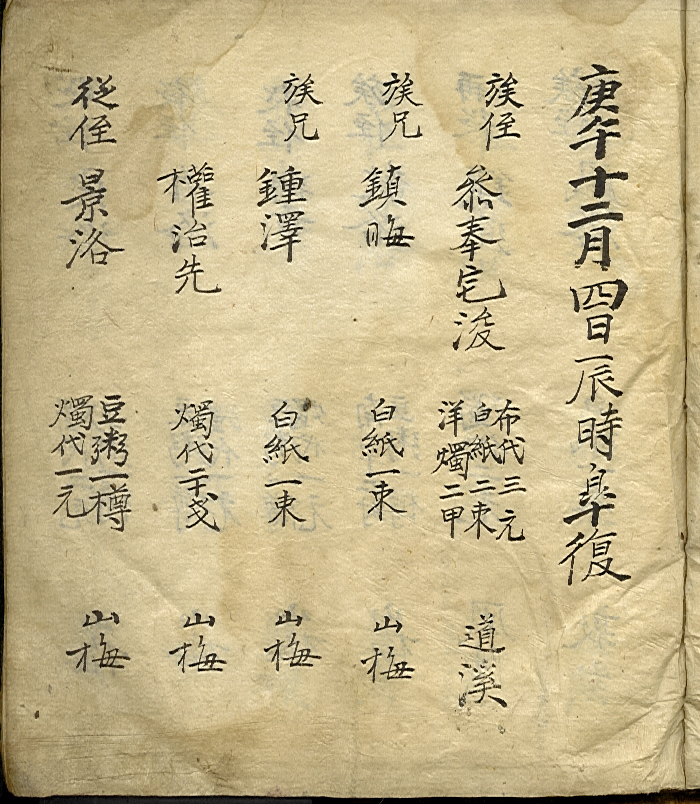 庚午十二月四日辰時皐復
族侄 叅奉宅浚 布代三元 白紙二束 洋燭二甲 道溪
族兄 鎮晦 白紙一束 山梅
族兄 鍾澤 白紙一束 山梅
權治先 燭代二十戔 山梅
從侄 景洛 豆粥一樽 燭代一元 山梅